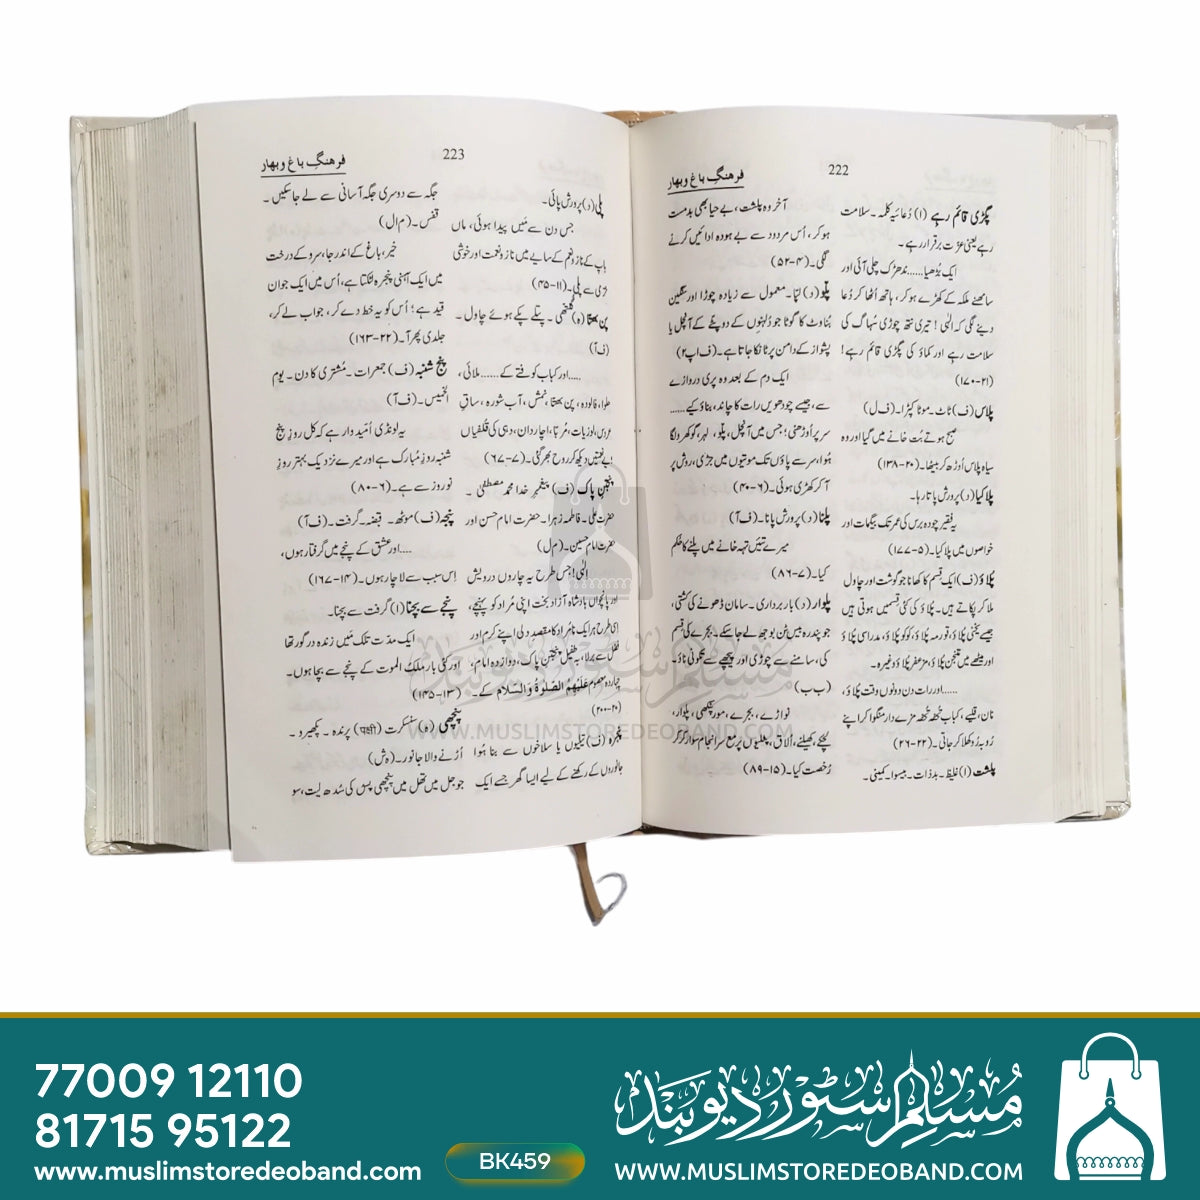 222
فرهنگِ باغ و بهار
پگڑی قائم رہے (ا) دُعائیہ کلمہ۔ سلامت
رہے یعنی عزت برقرار رہے۔
ایک بُڑھیا...... نِدھڑک چلی آئی اور
سامنھنے ملکہ کے کھڑے ہو کر، ہاتھ اُٹھا کر دُعا
دینے لگی کہ الٰہی! تیری نتھ چوڑی سُہاگ کی
سلامت رہے اور کماؤ کی پگڑی قائم رہے!
(۲۱-۱۷۰)
پلاس (ف) ٹاٹ۔ موٹا کپڑا۔ (ف ل)
صبح ہوتے بُت خانے میں گیا اور وہ
سیاہ پلاس اُوڑھ کر بیٹھا۔ (۲۰-۱۳۸)
پلا کیا (د) پرورش پاتا رہا۔
یہ فقیر چودہ برس کی عمر تک بیگمات اور
خواصوں میں پلا کیا۔ (۵-۱۷۷)
پُلاؤ (ف) ایک قسم کا کھانا جو گوشت اور چاول
ملا کر پکاتے ہیں۔ پُلاؤ کی کئی قسمیں ہوتی ہیں
جیسے یخنی پُلاؤ، قورمہ پُلاؤ، کوکو پُلاؤ، مدراسی پُلاؤ
اور میٹھے میں متنجن پُلاؤ، مزعفر پُلاؤ وغیرہ۔
......اور رات دن دونوں وقت پُلاؤ،
نان، قلیے، کباب تُحفہ تُحفہ مزے دار منگوا کر اپنے
رُو بہ رُو کھلا کر جاتی۔ (۲۲-۲۶)
پلشت (ا) غلیظ۔ بدذات۔ بیسوا۔ کمینی۔
آخر وہ پلشت، بے حیا بھی بدمست
ہو کر، اُس مردود سے بے ہودہ ادائیں کرنے
لگی۔ (۴-۵۲)
پلّو (د) لپّا۔ معمول سے زیادہ چوڑا اور سنگین
بُناوٹ کا گوٹا جو دُلہنوں کے دوپٹے کے آنچل یا
پشواز کے دامن پر ٹانکا جاتا ہے۔ (ف اپ ۲)
ایک دم کے بعد وہ پری دروازے
سے، جیسے چودھویں رات کا چاند، بناؤ کیے......
سر پر اُوڑھنی؛ جس میں آنچل، پلّو، لہر، گوکھرو لگا
ہُوا، سر سے پاؤں تک موتیوں میں جڑی، روش پر
آ کر کھڑی ہوئی۔ (۶-۴۰)
پلنا (د) پرورش پانا۔ (ف آ)
میرے تئیں تہہ خانے میں پلنے کا حُکم
کیا۔ (۷-۸۶)
پلوار (د) باربرداری۔ سامان ڈھونے کی کشتی،
جو پندرہ بیس ٹن بوجھ لے جا سکے۔ بجرے کی قسم
کی، سامنے سے چوڑی اور پیچھے سے تکونی ناؤ۔
(ب ب)
نواڑے، بجرے، مور پنکھی، پلوار،
لچکے، کھیلنے، اُلاق، پٹیلیوں پر مع سرانجام سوار کر کر
رُخصت کیا۔ (۱۵-۸۹)
223
فرهنگِ باغ و بهار
پلی (د) پرورش پائی۔
جس دن سے مَیں پیدا ہوئی، ماں
باپ کے ناز و نِعَم کے سایے میں ناز و نعمت اور خوشی
خرّمی سے پلی۔ (۱۱-۴۵)
پن بھتا (ہ) گُلتھی۔ پتلے پکے ہوئے چاول۔
(ف آ)
.....اور کباب کوفتے کے...... ملائی،
حلوا، فالودہ، پن بھتا، نمش، آب شورہ، ساقِ
عروس، لوزیات، مُربّا، اچار دان، دہی کی قُلفیاں
یہ نعمتیں دیکھ کر روح بھر گئی۔ (۷-۶۷)
پنجتنِ پاک (ف) پیغمبرِ خدا محمد مصطفیٰ۔
حضرت علی۔ فاطمہ زہرا۔ حضرت امام حسن اور
حضرت امام حسین۔ (م ل)
الٰہی! جس طرح یہ چاروں درویش
اور پانچواں بادشاہ آزاد بخت اپنی مُراد کو پہنچے،
اِسی طرح ہر ایک نامُراد کا مقصدِ دلی اپنے کرم اور
فضل سے بر لا، بہ طُفیل پنجتنِ پاک، دوازدہ امام،
چہاردہ معصوم عَلَیْهِمُ الصَّلٰوةُ وَ السَّلَام کے۔
(۲۰-۲۰۰)
پنجرہ (ف) تیلیوں یا سلاخوں سے بنا ہُوا
جانوروں کے رکھنے کے لیے ایسا گھر جسے ایک
جگہ سے دوسری جگہ آسانی سے لے جا سکیں۔
قفس۔ (م ال)
خیر، باغ کے اندر جا، سرو کے درخت
میں ایک آہنی پنجرہ لٹکتا ہے، اُس میں ایک جوان
قید ہے؛ اُس کو یہ خط دے کر، جواب لے کر،
جلدی پھر آ۔ (۲۲-۱۶۳)
پنج شنبہ (ف) جمعرات۔ مُشتری کا دن۔ یوم
الخمیس۔ (ف آ)
یہ لونڈی اُمّیدوار ہے کہ کل روزِ پنج
شنبہ روزِ مُبارک ہے اور میرے نزدیک بہتر روزِ
نوروز سے ہے۔ (۶-۸۰)
پنجہ (ف) موٹھ۔ قبضہ۔ گرفت۔ (ف آ)
....اور عشق کے پنجے میں گرفتار ہوں،
اِس سبب سے لاچار ہوں۔ (۱۴-۱۶۷)
پنجے سے بچنا (ا) گرفت سے بچنا۔
ایک مدّت تلک مَیں زندہ درگور تھا
اور کئی بار ملکُ الموت کے پنجے سے بچا ہوں۔
(۱۳-۱۳۵)
پنچھی (ہ) سنسکرت (पक्षी) پرندہ۔ پکھیرو۔
اُڑنے والا جانور۔ (ہ ش)
جو جل میں تھل میں پنچھی پس کی سُدھ لیت، سو
مسلم سٹور دیوبند
WWW.MUSLIMSTOREDEOBAND.COM
77009 12110
81715 95122
www.muslimstoredeoband.com
BK459
مُسلم سٹور دیوبند
WWW.MUSLIMSTOREDEOBAND.COM